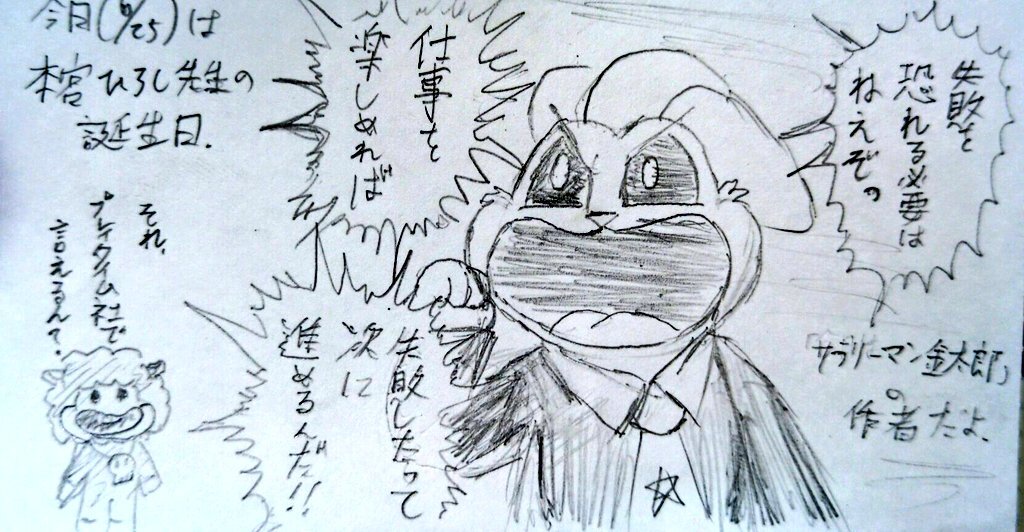 今日(11/25)は
本宮ひろし先生の
誕生日.
失敗を
恐れる必要は
ねえぞ。
仕事を
楽しめれば
失敗したって
次に
進めるんだ!!
「サラリーマン金太郎」
の
作者だよ、
それ、
プレイタイム社で
言えるん?.